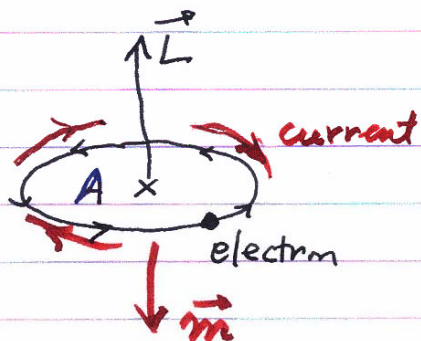 L
current
A
x
electron
m